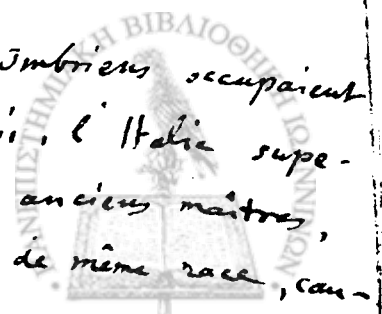 Ombriens occupaient
l'Italie supe-
anciens maîtres,
de même race, cau-
ΠΑΝΕΠΙΣΤΗΜΙΑΚΗ ΒΙΒΛΙΟΘΗΚΗ ΙΩΑΝΝΙΝΩΝ